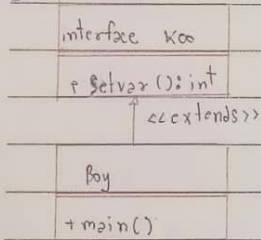 interface Koo
+ getvar(): int
<<extends>>
Boy
+main()